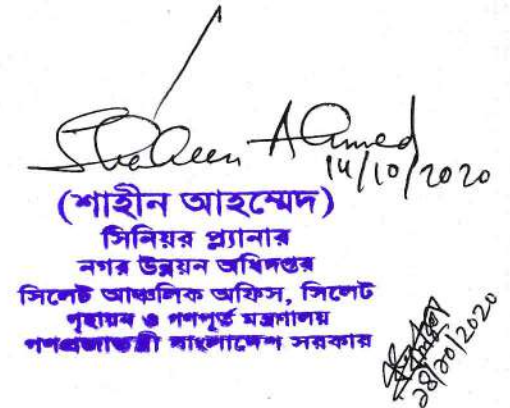 Shaheen Ahmed
14/10/2020
(শাহীন আহম্মেদ)
সিনিয়র প্ল্যানার
নগর উন্নয়ন অধিদপ্তর
সিলেট আঞ্চলিক অফিস, সিলেট
গৃহায়ন ও গণপূর্ত মন্ত্রণালয়
গণপ্রজাতন্ত্রী বাংলাদেশ সরকার
১৪/১০/২০২০